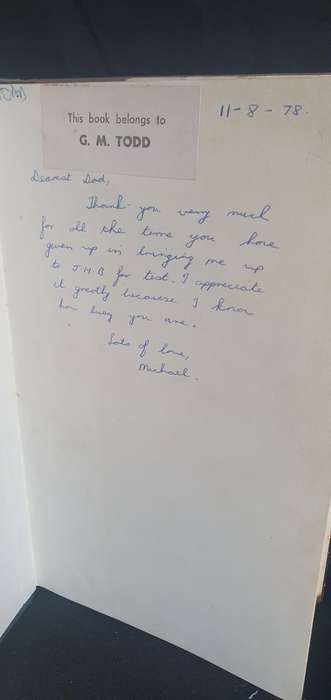 This book belongs to
G. M. TODD
11-8-78.
Dearest Dad,
Thank-you very much
for all the time you have
given up in bringing me up
to J.H.B for test. I appreciate
it greatly because I know
how busy you are.
Lots of love,
Michael.